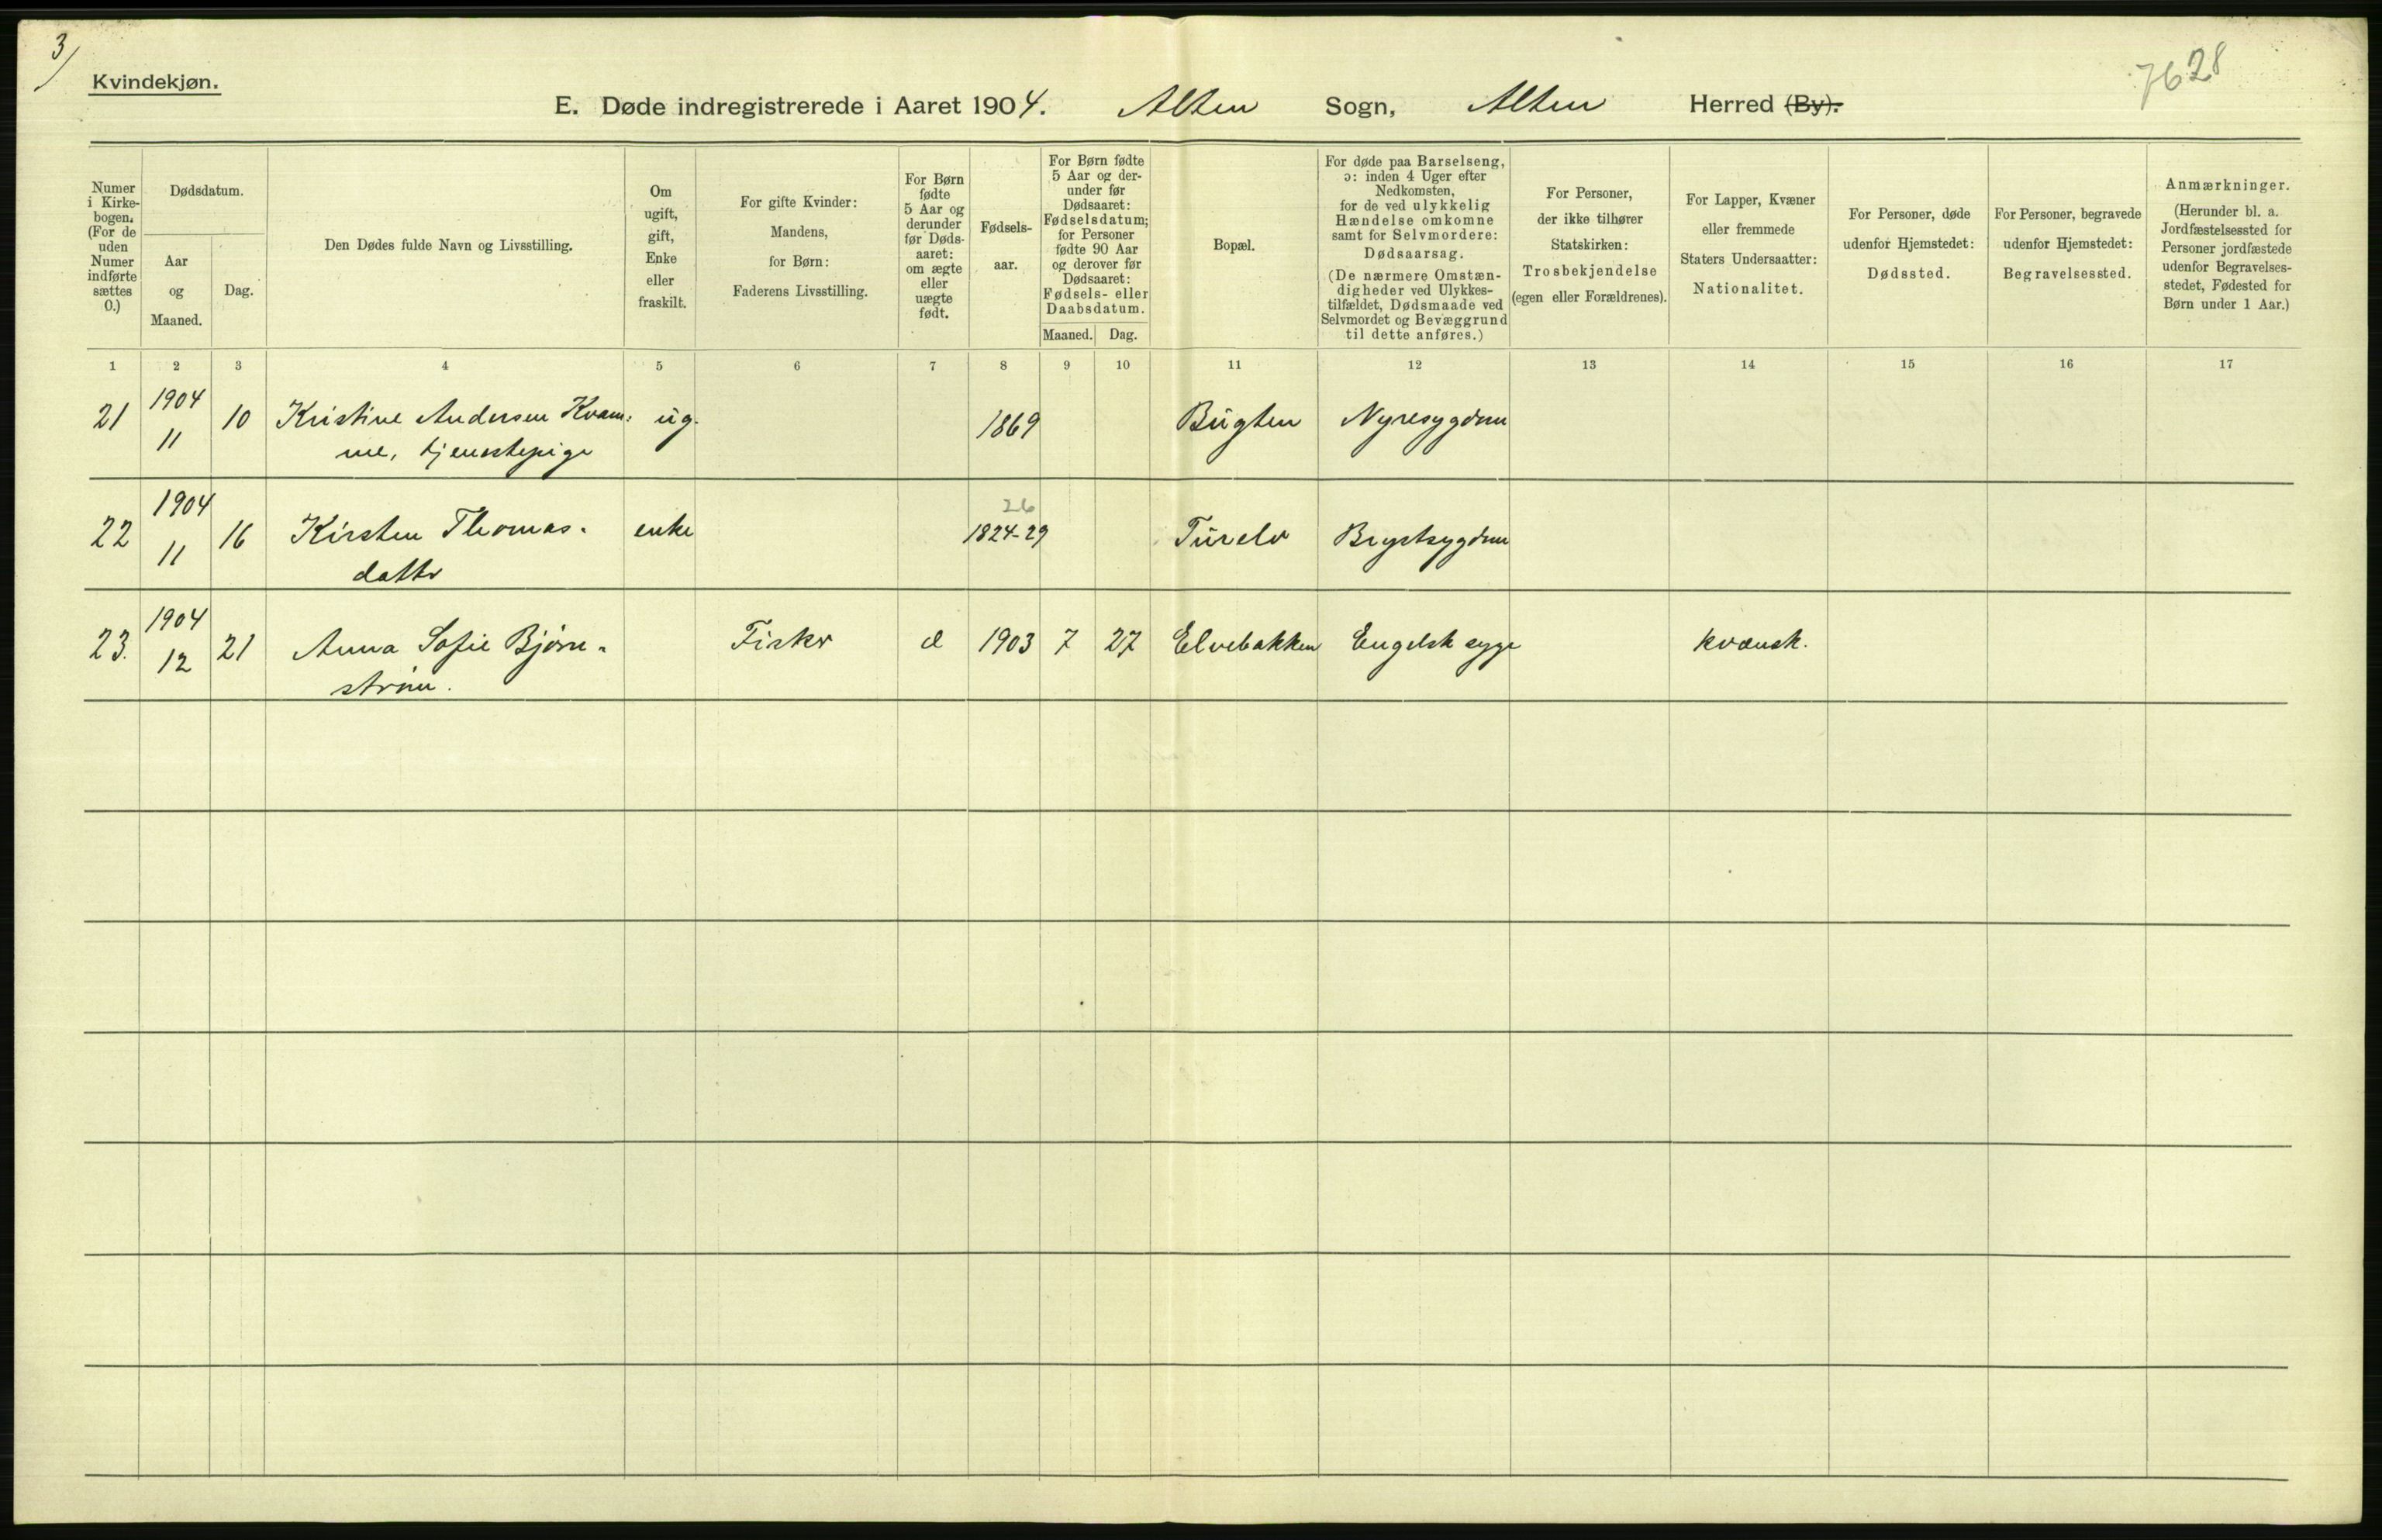 3)
Kvindekjøn.
7628
E. Døde indregistrerede i Aaret 1904. Alten Sogn, Alten Herred (By).
Numer i Kirkebogen. (For de uden Numer indførte sættes 0.)
Dødsdatum.
Aar og Maaned.
Dag.
Den Dødes fulde Navn og Livsstilling.
Om ugift, gift, Enke eller fraskilt.
For gifte Kvinder: Mandens, for Børn: Faderens Livsstilling.
For Børn fødte 5 Aar og derunder før Dødsaaret: om ægte eller uægte født.
Fødselsaar.
For Børn fødte 5 Aar og derunder før Dødsaaret: Fødselsdatum; for Personer fødte 90 Aar og derover før Dødsaaret: Fødsels- eller Daabsdatum.
Maaned. Dag.
Bopæl.
For døde paa Barselseng, ɔ: inden 4 Uger efter Nedkomsten, for de ved ulykkelig Hændelse omkomne samt for Selvmordere: Dødsaarsag. (De nærmere Omstændigheder ved Ulykkestilfældet, Dødsmaade ved Selvmordet og Bevæggrund til dette anføres.)
For Personer, der ikke tilhører Statskirken: Trosbekjendelse (egen eller Forældrenes).
For Lapper, Kvæner eller fremmede Staters Undersaatter: Nationalitet.
For Personer, døde udenfor Hjemstedet: Dødssted.
For Personer, begravede udenfor Hjemstedet: Begravelsessted.
Anmærkninger. (Herunder bl. a. Jordfæstelsessted for Personer jordfæstede udenfor Begravelsesstedet, Fødested for Børn under 1 Aar.)
1 2 3 4 5 6 7 8 9 10 11 12 13 14 15 16 17
21 1904 11 10 Kristine Andersen Kvam- ug. 1869 Bugten Nyresygdom
me, tjenestepige
22 1904 11 16 Kirsten Thomas- enke 26 1824-29 Turelv Brystsygdom
datter
23. 1904 12 21 Anna Sofie Bjørn- Fisker 1903 7 27 Elvebakken Engelsk syge kvænsk.
strøm.